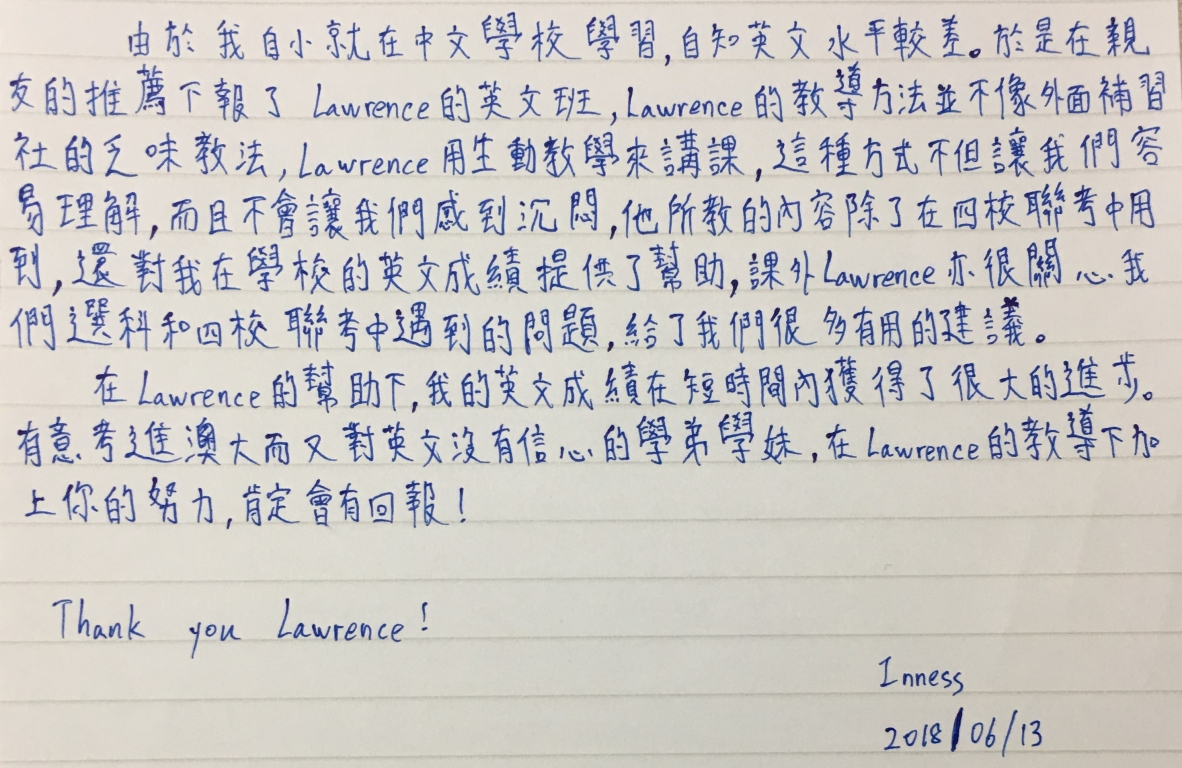 由於我自小就在中文學校學習,自知英文水平較差。於是在親
友的推薦下報了Lawrence的英文班,Lawrence的教導方法並不像外面補習
社的乏味教法,Lawrence用生動教學來講課,這種方式不但讓我們容
易理解,而且不會讓我們感到沉悶,他所教的內容除了在四校聯考中用
到,還對我在學校的英文成績提供了幫助,課外Lawrence亦很關心我
們選科和四校聯考中遇到的問題,給了我們很多有用的建議。
在Lawrence的幫助下,我的英文成績在短時間內獲得了很大的進步。
有意考進澳大而又對英文沒有信心的學弟學妹,在Lawrence的教導下加
上你的努力,肯定會有回報!
Thank you Lawrence!
Inness
2018/06/13